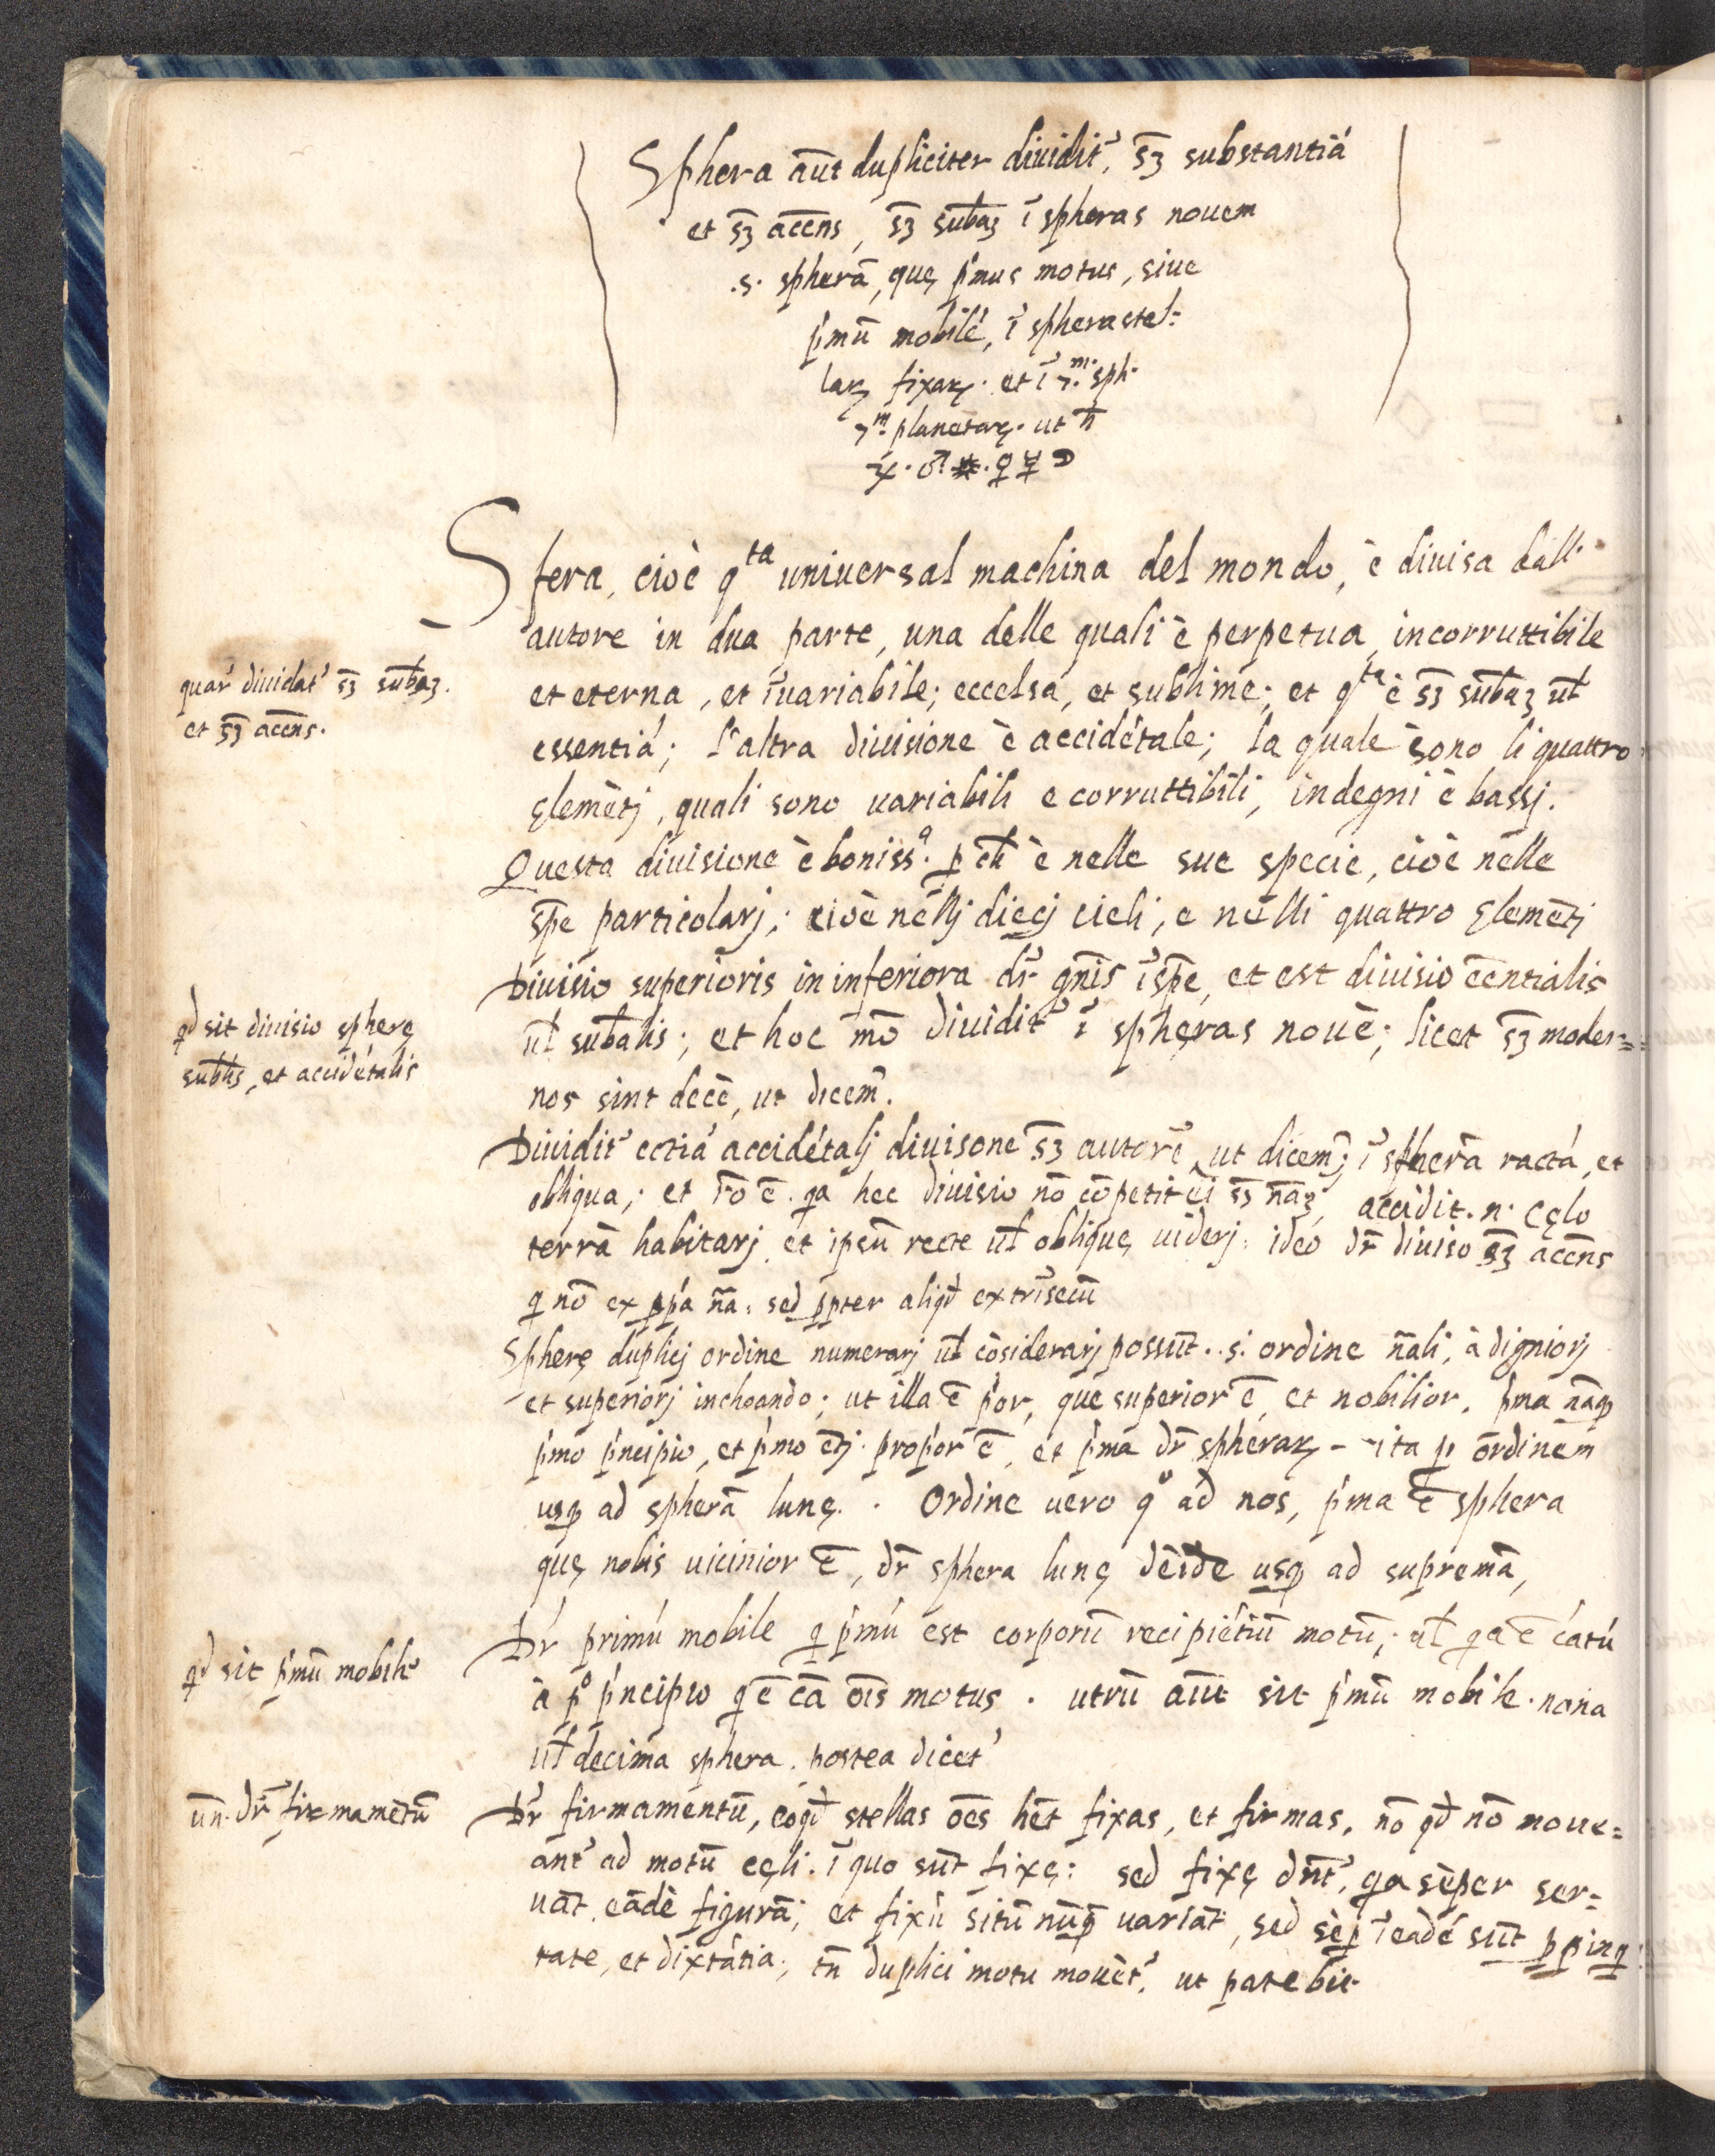 Sphera aūt dupliciter diuidit̉, s̄ȝ substantiā
et s̄ȝ accēns, s̄ȝ sub̄aȝ ī spheras nouem
.s. spherā, quę p̓mus motus, siue
p̓mū mobilé, ī sphera stel:
laꝝ fixaꝝ. et ī 7.ᵐ sph.
7ᵐ planetaꝝ. ut ♄
♃. ♂ ☀. ♀ ☿ ☽
Sfera, cioè qᵗᵃ uniuersal machina del mondo, è diuisa dall'
autore in dua parte, una delle quali è perpetua, incorruttibile
quar̉ diuidat̉ s̄ȝ sub̄aȝ.
et eterna, et īuariabile; eccelsa, et sublime; et qᵗᵃ è s̄ȝ sub̄aȝ ul̄
et s̄ȝ accēns.
essentiá; l'altra diuisione è accidétale; la quale sono li quattro
ęlemētj, quali sono uariabili e corruttibili, indegni è bassj.
Questa diuisione è boniss.ᵃ ꝑ ch̄ è nelle sue specie, cioè nelle
sp̄e particolarj; cioè nellj diecj cieli, e nelli quattro ęlemētj
Diuisio superioris in inferiora dr̄ gn̄is ī sp̄e, et est diuisio ēentialis
qd̄ sit diuisio spherę
ul̄ sub̄alis; et hoc mō diuidit̉ ī spheras nouē; licet s̄ȝ moder=
sub̄lis, et accidétalis
nos sint decē, ut dicem̉.
Diuidit̉ ectiá accidétalj diuisone s̄ȝ autorē, ut dicem̉; ī spherā ractá, et
obliqua; et rō ē. qa hec diuisio nō cōpetit ei s̄ȝ n̄aȝ, accidit. n. cęlo
terrā habitarj, et ipsū recte ul̄ oblique uiderj: ideo dr̄ diuiso s̄ȝ accēns
q nō ex ꝓp̓a n̄a: sed ꝓpter aliqd̄ extrīsecū
Spherę duplicj ordine numerarj ul̄ cōsiderarj possūt. .s. ordine n̄ali, à digniorj
et superiorj inchoando; ut illa ē p̓or, que superior ē, et nobilior, p̓ma nāqꝫ
p̓mo p̓ncipio, et p̓mo ētj. propior ē, et p̓ma dr̄ spheraꝝ - ita ꝑ ordinem
usqꝫ ad spherā lunę. . Ordine uero qº ad nos, p̓ma ē sphera
quę nobis uicinior ē, dr̄ sphera lunę dēide usqꝫ ad supremā,
Dr̄ primú mobile q p̓mú est corporū recipiétiū motū; ul̄ qa ē cátú
qd̄ sit p̓mū mobile
à pº p̓ncipio q ē cā oīs motus. utrū aūt sit p̓mū mobile. nona
ul̄ decima sphera. postea dicet̉
un̄. dr̄ firmamētū
Dr̄ firmamentū, eoqd̄ stellas oēs hēt fixas, et firmas, nō qd̄ nō moue=
ant̉ ad motū cęli. ī quo sūt fixę: sed fixę dn̄t̉, qa sēper ser=
uāt eādē figurā; et fixū sitū nūqꝫ uariāt, sed sēꝑ ī eadé sūt ꝓpinq
tate, et dixtātia; tn̄ duplici motu mouēt̉, ut patebit